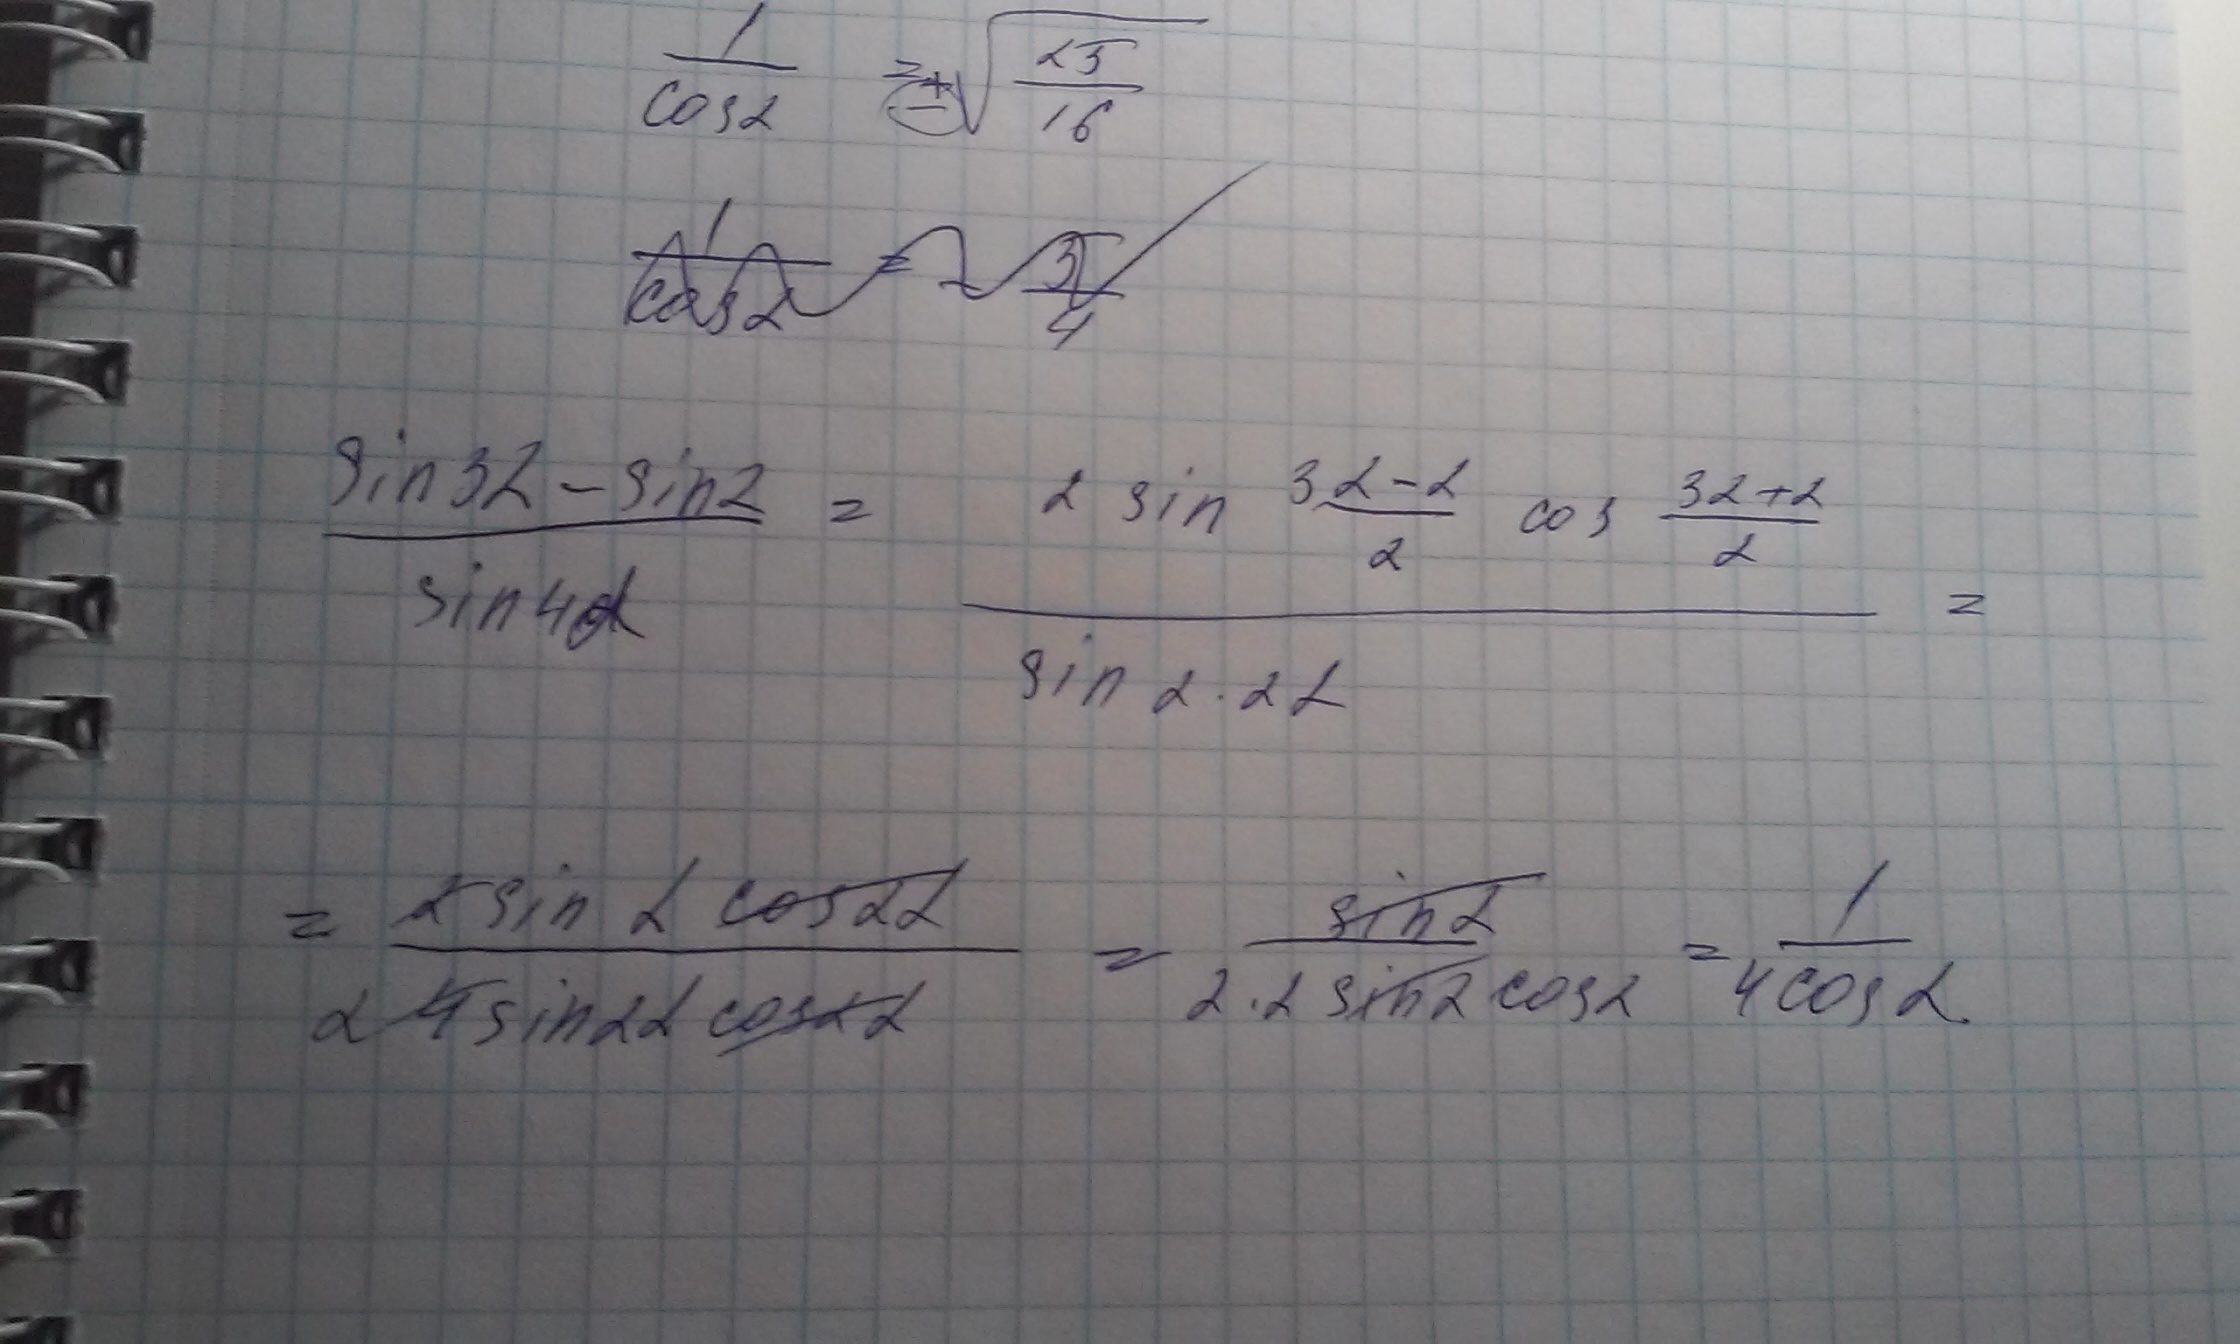 1/cosα = ±√(25/16)
1/cosα = - 5/4
(sin3α - sinα)/sin4α = (2 sin (3α-α)/2 cos (3α+α)/2)/(sin 2·2α) =
= (2 sin α cos2α)/(2 4 sin2α cos2α) = sinα/(2·2 sinα cosα) = 1/(4cosα)